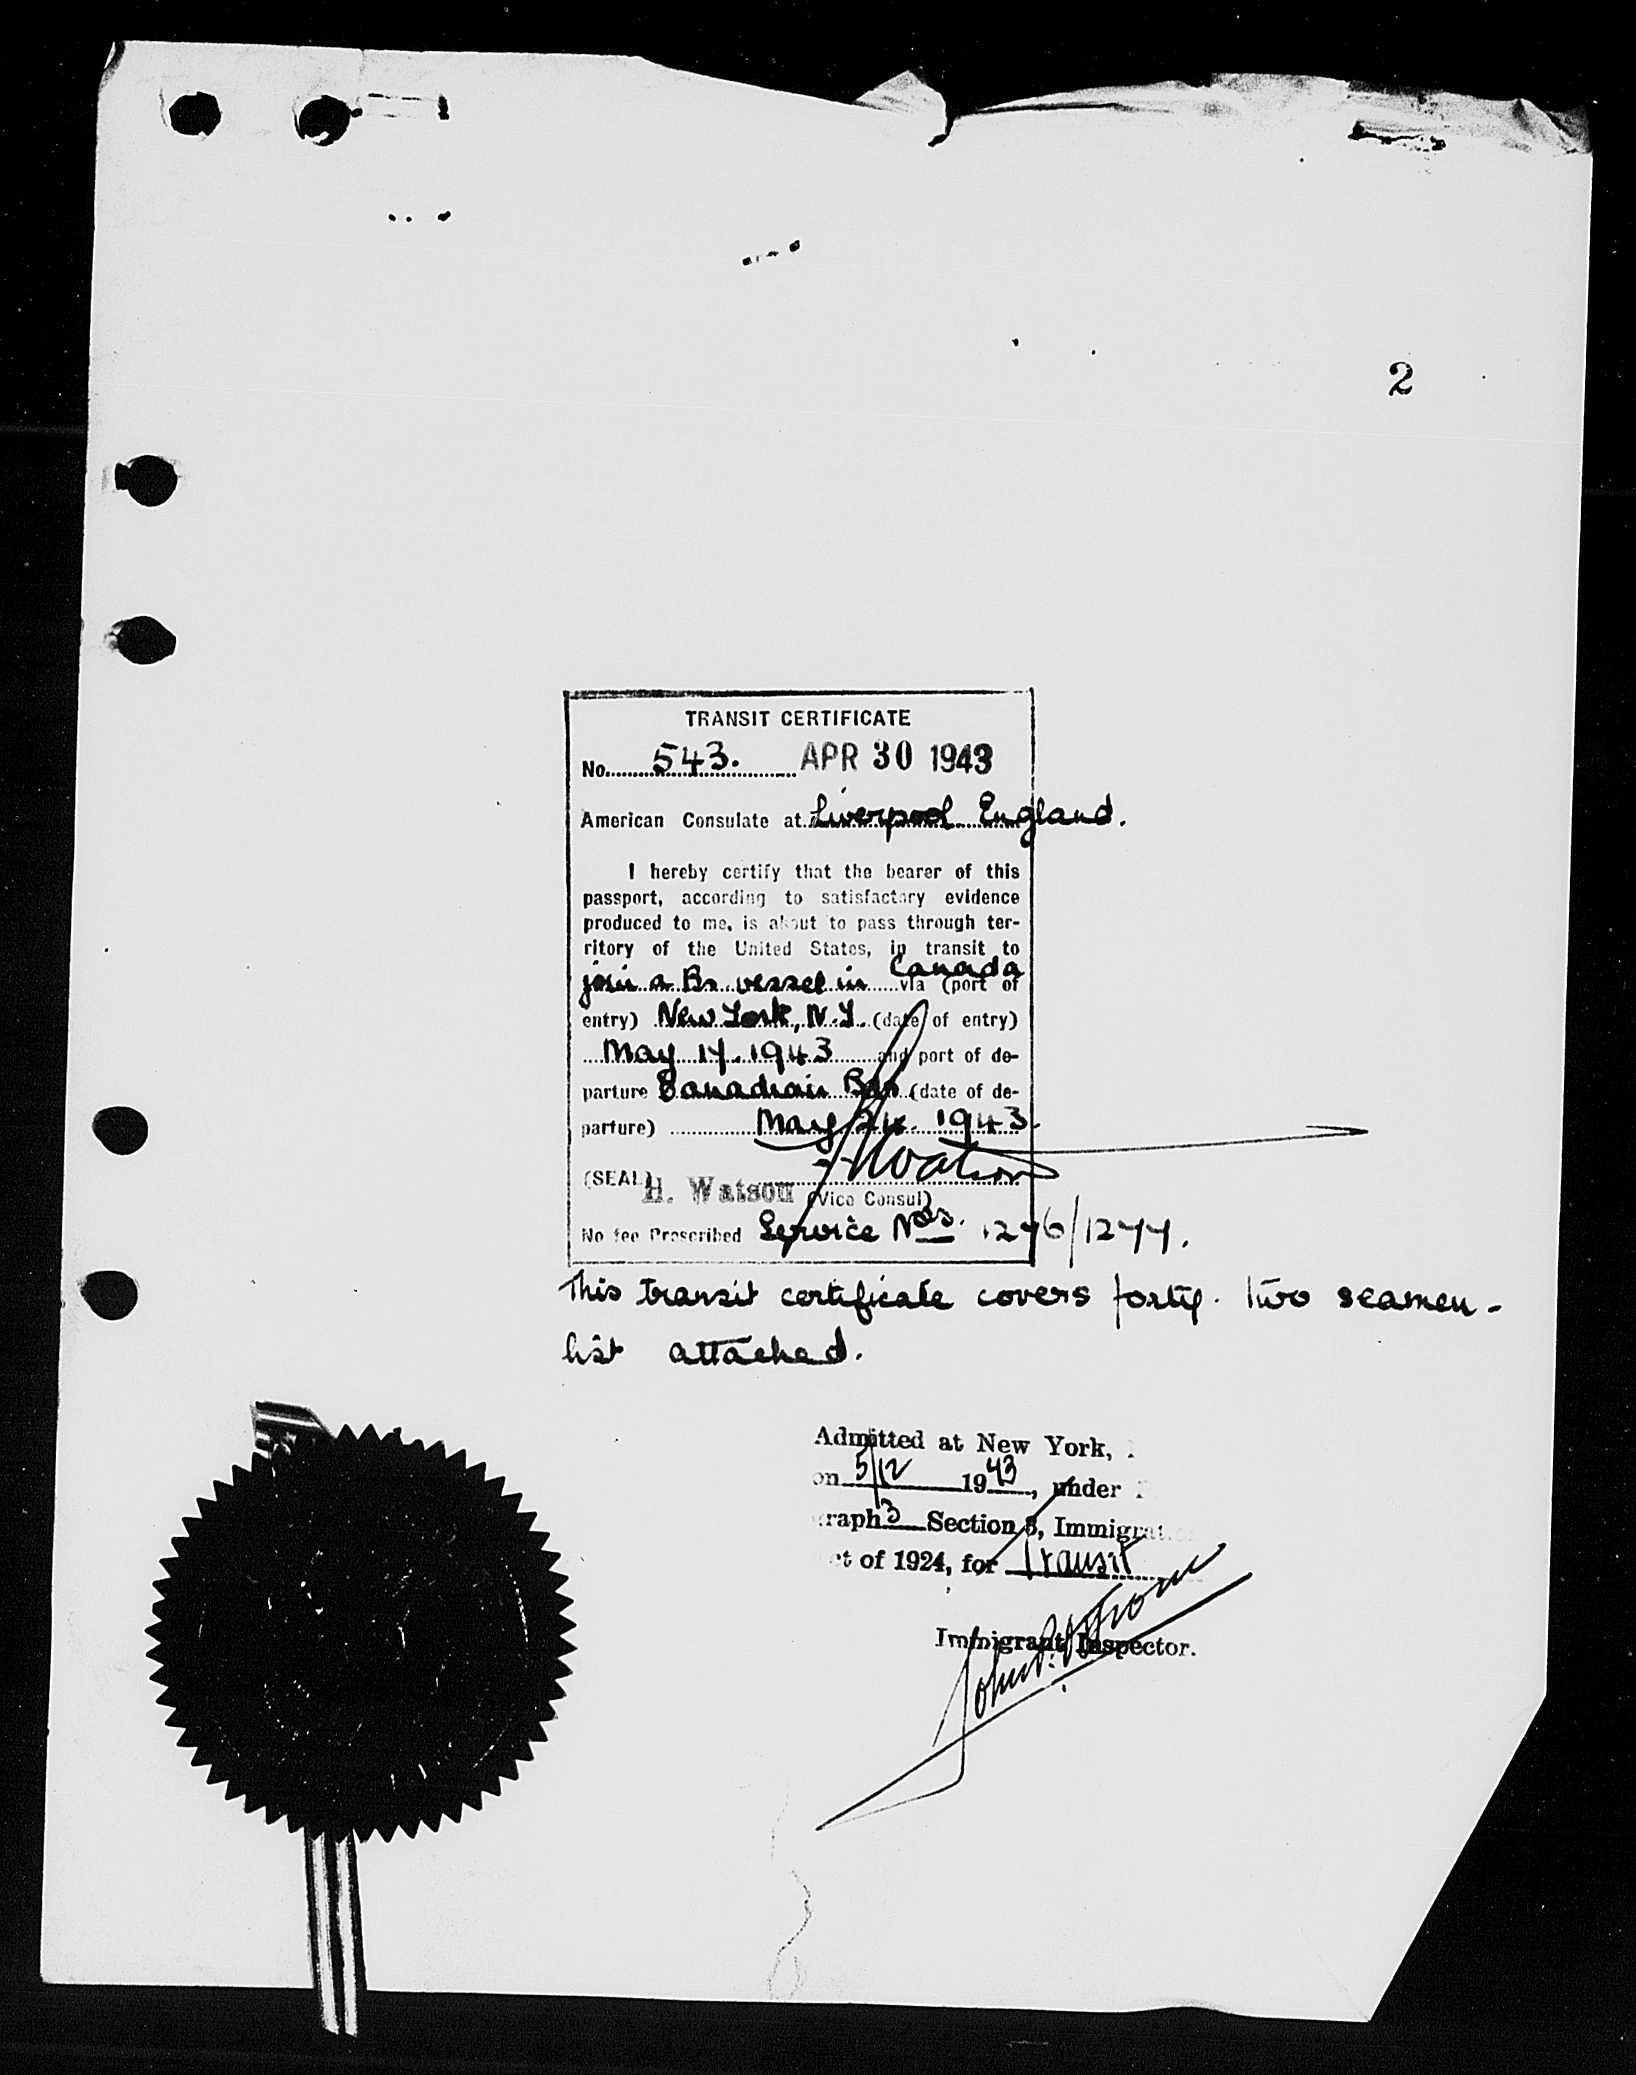 2
TRANSIT CERTIFICATE
No. 543. APR 30 1943
American Consulate at Liverpool England.
I hereby certify that the bearer of this
passport, according to satisfactory evidence
produced to me, is about to pass through ter-
ritory of the United States, in transit to
join a Br. vessel in Canada via (port of
entry) New York, N.Y. (date of entry)
May 17. 1943 and port of de-
parture Canadian (date of de-
parture) May 24. 1943.
(SEAL) H. Watson HWatson
(Vice Consul)
No fee Prescribed Service Nos. 1276/1277.
This transit certificate covers forty-two seamen -
list attached.
Admitted at New York,
on 5/12 1943, under
graph 3 Section 3, Immigrat
ct of 1924, for Transit
Immigrant Inspector.